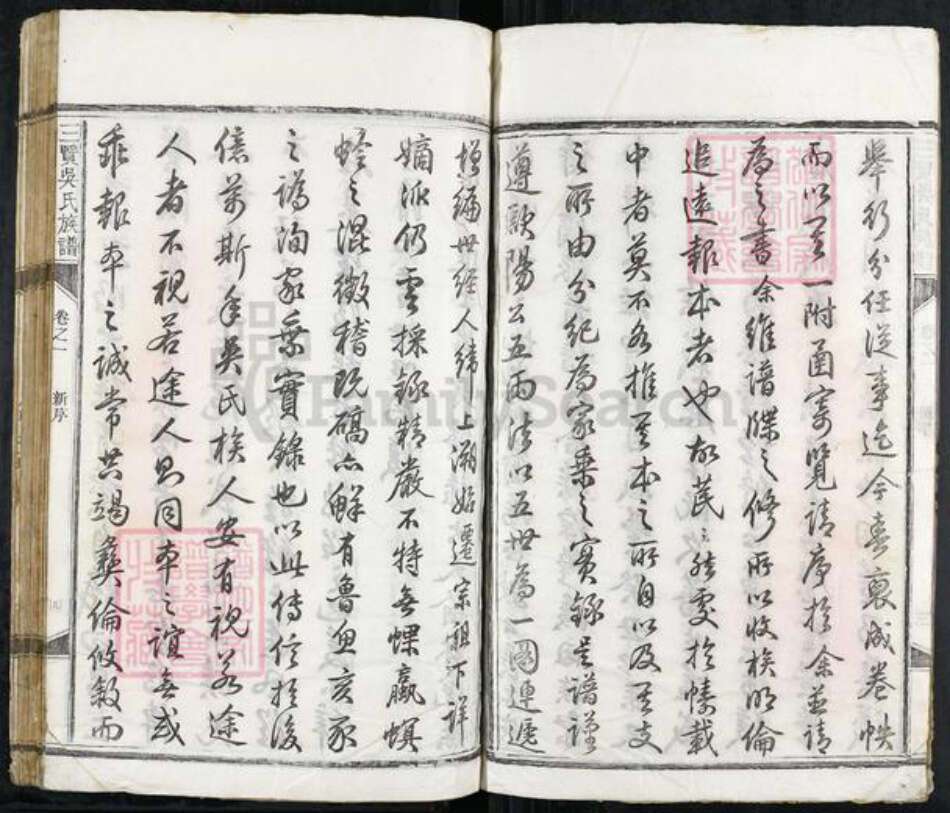 舉行分任從事迄今春裒成卷帙
而以一附函寄覽請序於余並請
為之書余維譜牒之修所以收族明倫
追遠報本者也故芸芸然處於幬載
中者莫不各推其本之所自以及其支
之所由分紀為家乘之實錄是譜謹
遵歐陽公五而法以五世為一圖連遞
增編世經人緯上溯始遷宗祖下詳
嫡派仍雲採錄精嚴不特無螺蠃螟
蛉之混徵稽既碻亦鮮有魯魚亥豕
之譌洵家乘實錄也以此傳信於後
億萬斯年吳氏族人安有視若途
人者不視若途人則同本之誼無或
乖報本之誠常共竭彝倫攸敘而
三賢吳氏族譜
卷之一
新序
FamilySearch